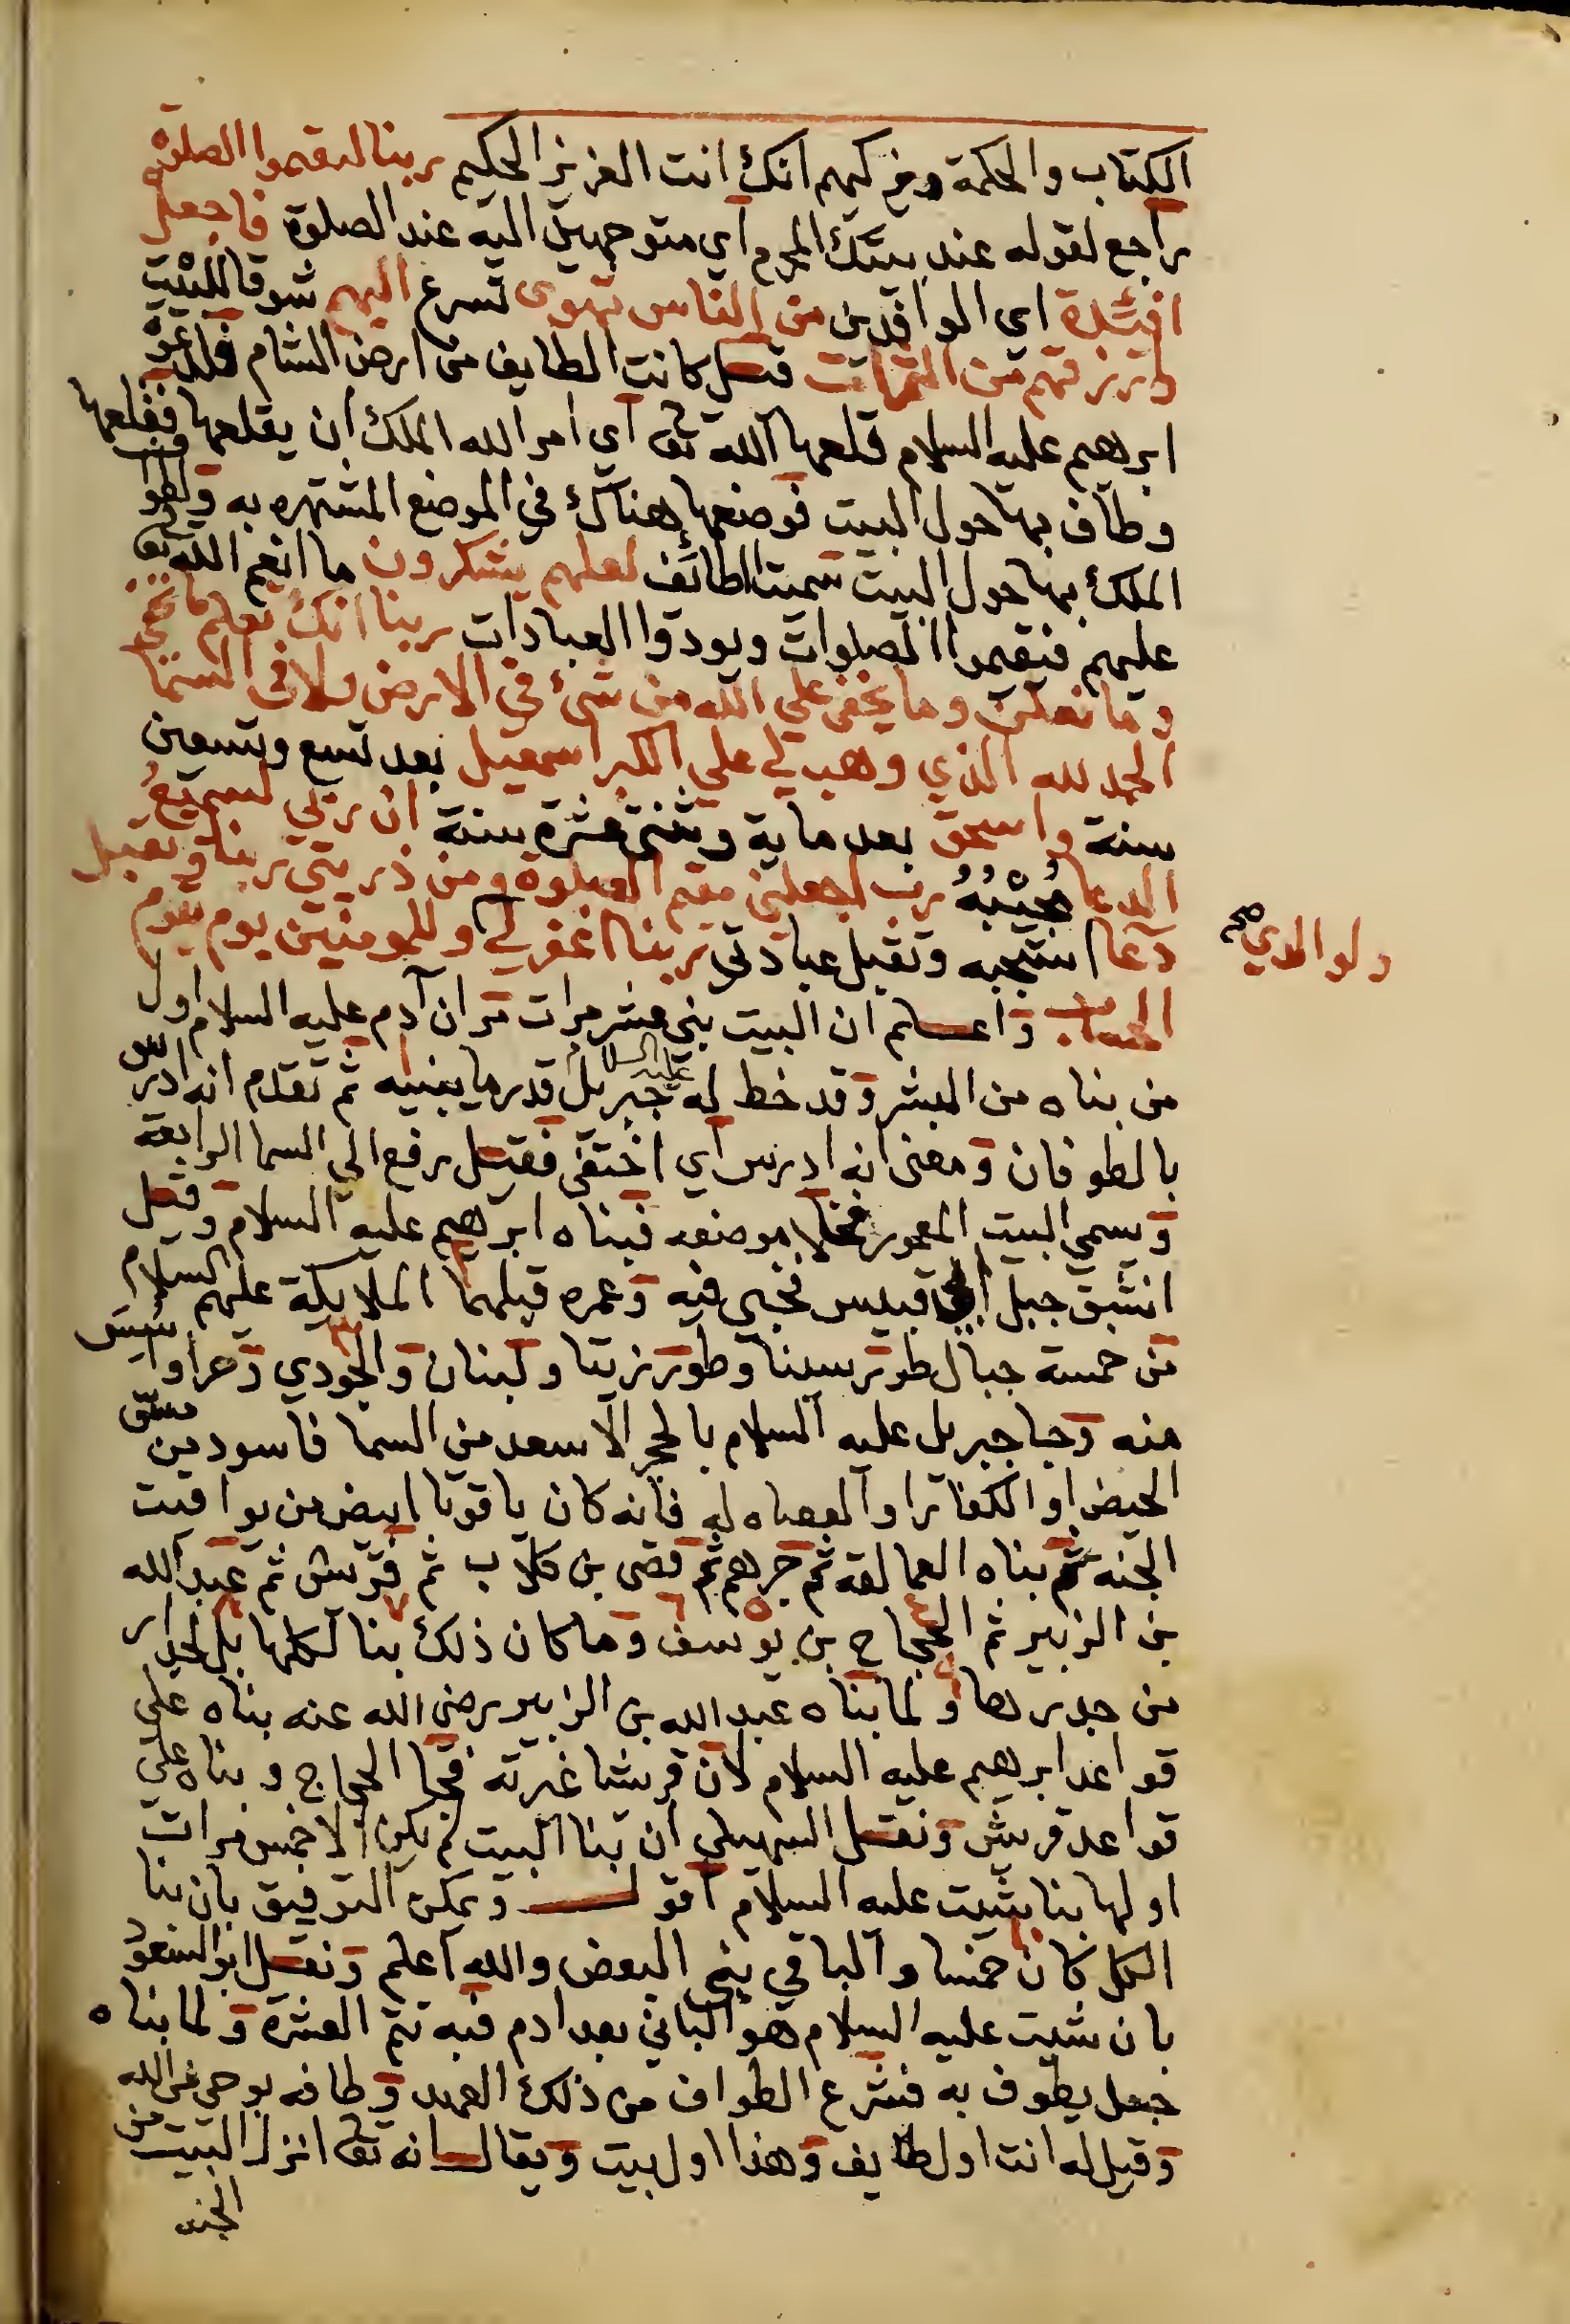 الكتاب والحكمة ويزكيهم انك انت العزيز الحكيم ربنا ليقيموا الصلوة
راجع لقوله عند بيتك المحرم اي متوجهين اليه عند الصلوة فاجعل
افئدة اي الوافدين من الناس تهوى تسرع اليهم شوقا للبيت
وارزقهم من الثمرات قيل كانت الطايف من ارض الشام فلما دعا
ابرهيم عليه السلام قلعها الله تعالى اي امر الله الملك ان يقلعها فقلعها
وطاف بها حول البيت فوضعها هناك في الموضع المشتهره به ولطواف
الملك بها حول البيت سميت الطائف لعلهم يشكرون ما انعم الله تعالى
عليهم فيقيموا الصلوات ويودوا العبادات ربنا انك تعلم ما نخفي
وما نعلن وما يخفى علي الله من شئ في الارض ولا في السما
الحمد لله الذي وهب لي علي الكبر اسمعيل بعد تسع وتسعين
سنة واسحق بعد ماية وثنتي عشرة سنة ان ربي لسميع
الدعا مجيبه رب اجعلني مقيم الصلوة ومن ذريتي ربنا وتقبل
دعا استجبه وتقبل عبادتي ربنا اغفر لي وللمومنين يوم يقوم
ولوالدي صح
الحساب واعلم ان البيت بني عشر مرات مر ان آدم عليه السلام اول
من بناه من البشر وقد خط له جبريل عليه السلام قدر ما يبنيه ثم تقدم انه ادرس
بالطوفان ومعنى انه ادرس اي اختفى فقيل رفع الي السما الرابعة
ويسمي البيت المعمور فخلا موضعه فبناه ابرهيم عليه السلام وقيل
انشق جبل ابي قبيس فخبي فيه وعمره قبلهما الملايكة عليهم السلام
من خمسة جبال طور سينا وطور زيتا ولبنان والجودي وحرا واسيس
منه وجا جبريل عليه السلام بالحجر الاسعد من السما فاسود من مس
الحيض او الكفار او العصاه له فانه كان ياقوتا ابيض من يواقيت
الجنة ثم بناه العمالقة ثم جرهم ثم قصى بن كلاب ثم قريش ثم عبد الله
بن الزبير ثم الحجاج بن يوسف وما كان ذلك بنا لكلها بل لجدار
من جدرها ولما بناه عبد الله بن الزبير رضى الله عنه بناه على
قواعد ابرهيم عليه السلام لان قريشا غيرته فجا الحجاج وبناه علي
قواعد قريش ونقل السهيلي ان بنا البيت لم يكن الا خمس مرات
اولها بنا شيت عليه السلام اقول ويمكن التوفيق بان بنا
الكل كان خمسا والباقي بني البعض والله اعلم ونقل ابو السعود
بان شيت عليه السلام هو الباني بعد ادم فبه تتم العشرة ولما بناه
جعل يطوف به فشرع الطواف من ذلك العهد وطافه بوحي من الله
وقيل له انت اول طايف وهذا اول بيت ويقال انه تعالى انزل البيت من
الجنة